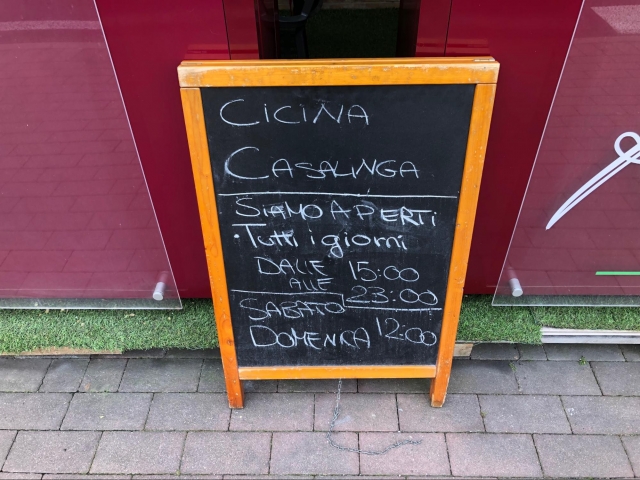 CICINA
CASALINGA
SIAMO APERTI
• Tutti i giorni
DALLE 15:00
ALLE 23:00
SABATO
DOMENICA 12:00